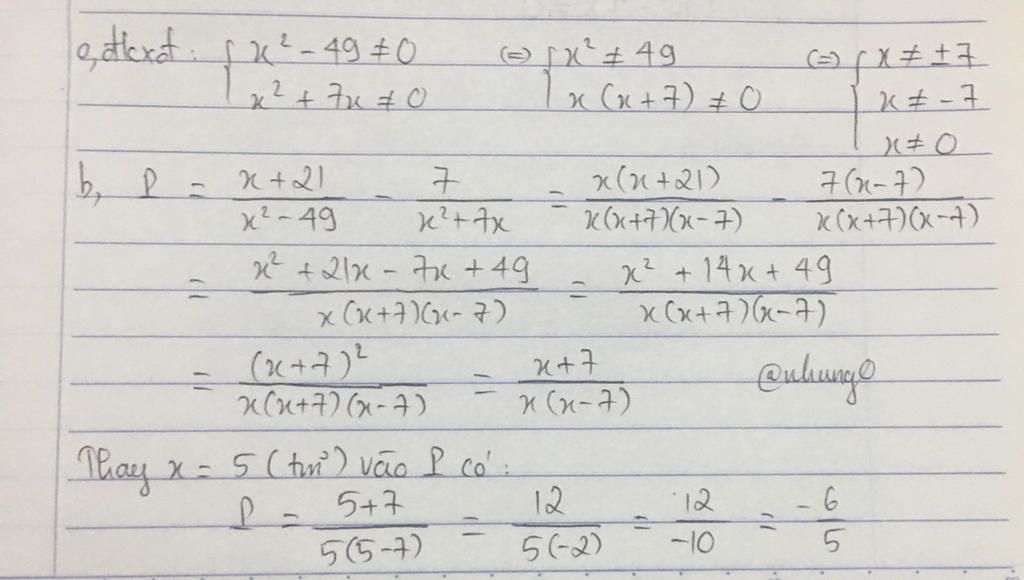 a, đkxđ: { x² - 49 ≠ 0 (=) { x² ≠ 49 (=) { x ≠ ±7
x² + 7x ≠ 0 x(x+7) ≠ 0 x ≠ -7
x ≠ 0
b, P = (x+21)/(x²-49) - 7/(x²+7x) = x(x+21)/(x(x+7)(x-7)) - 7(x-7)/(x(x+7)(x-7))
= (x² + 21x - 7x + 49)/(x(x+7)(x-7)) = (x² + 14x + 49)/(x(x+7)(x-7))
= (x+7)²/(x(x+7)(x-7)) = (x+7)/(x(x-7)) @nhung
Thay x = 5 (tm) vào P có:
P = (5+7)/(5(5-7)) = 12/(5(-2)) = 12/-10 = -6/5